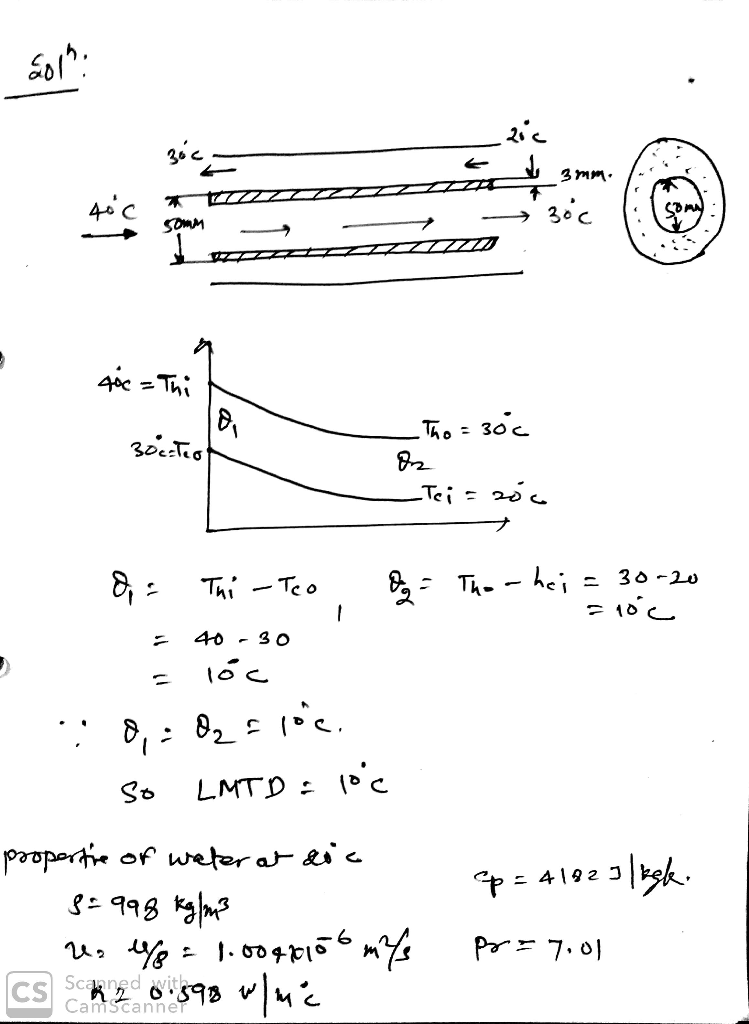 Solⁿ:
30°C 20°C
3 mm.
40°C 50mm 30°C 50mm
40°C = Thi
θ₁ Tho = 30°C
30°C=Tco θ₂
Tci = 20°C
θ₁ = Thi - Tco , θ₂ = Tho - hci = 30-20
= 40 - 30 = 10°C
= 10°C
∵ θ₁ = θ₂ = 10°C.
So LMTD = 10°C
propertie of water at 20°C
Cp = 4182 J/kgk.
ρ = 998 kg/m³
ν = μ/ρ = 1.004×10⁻⁶ m²/s Pr = 7.01
k = 0.598 W/m°C
CS Scanned with
CamScanner